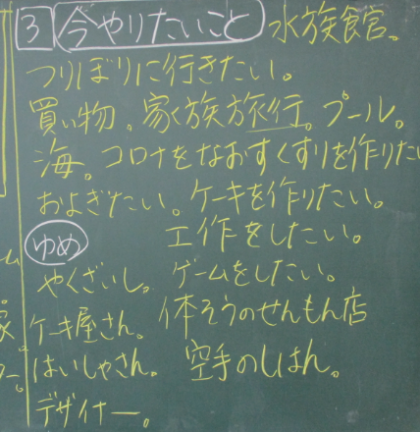 3 今やりたいこと 水族館。
つりぼりに行きたい。
買い物。家族旅行。プール。
海。コロナをなおすくすりを作りたい
およぎたい。ケーキを作りたい。
工作をしたい。
ゆめ
やくざいし。ゲームをしたい。
ケーキ屋さん。体そうのせんもん店
はいしゃさん。空手のしはん。
デザイナー。